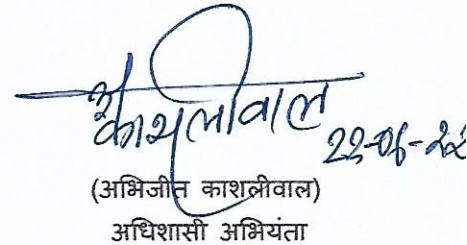 काशलीवाल
22-06-22
(अभिजीत काशलीवाल)
अधिशासी अभियंता